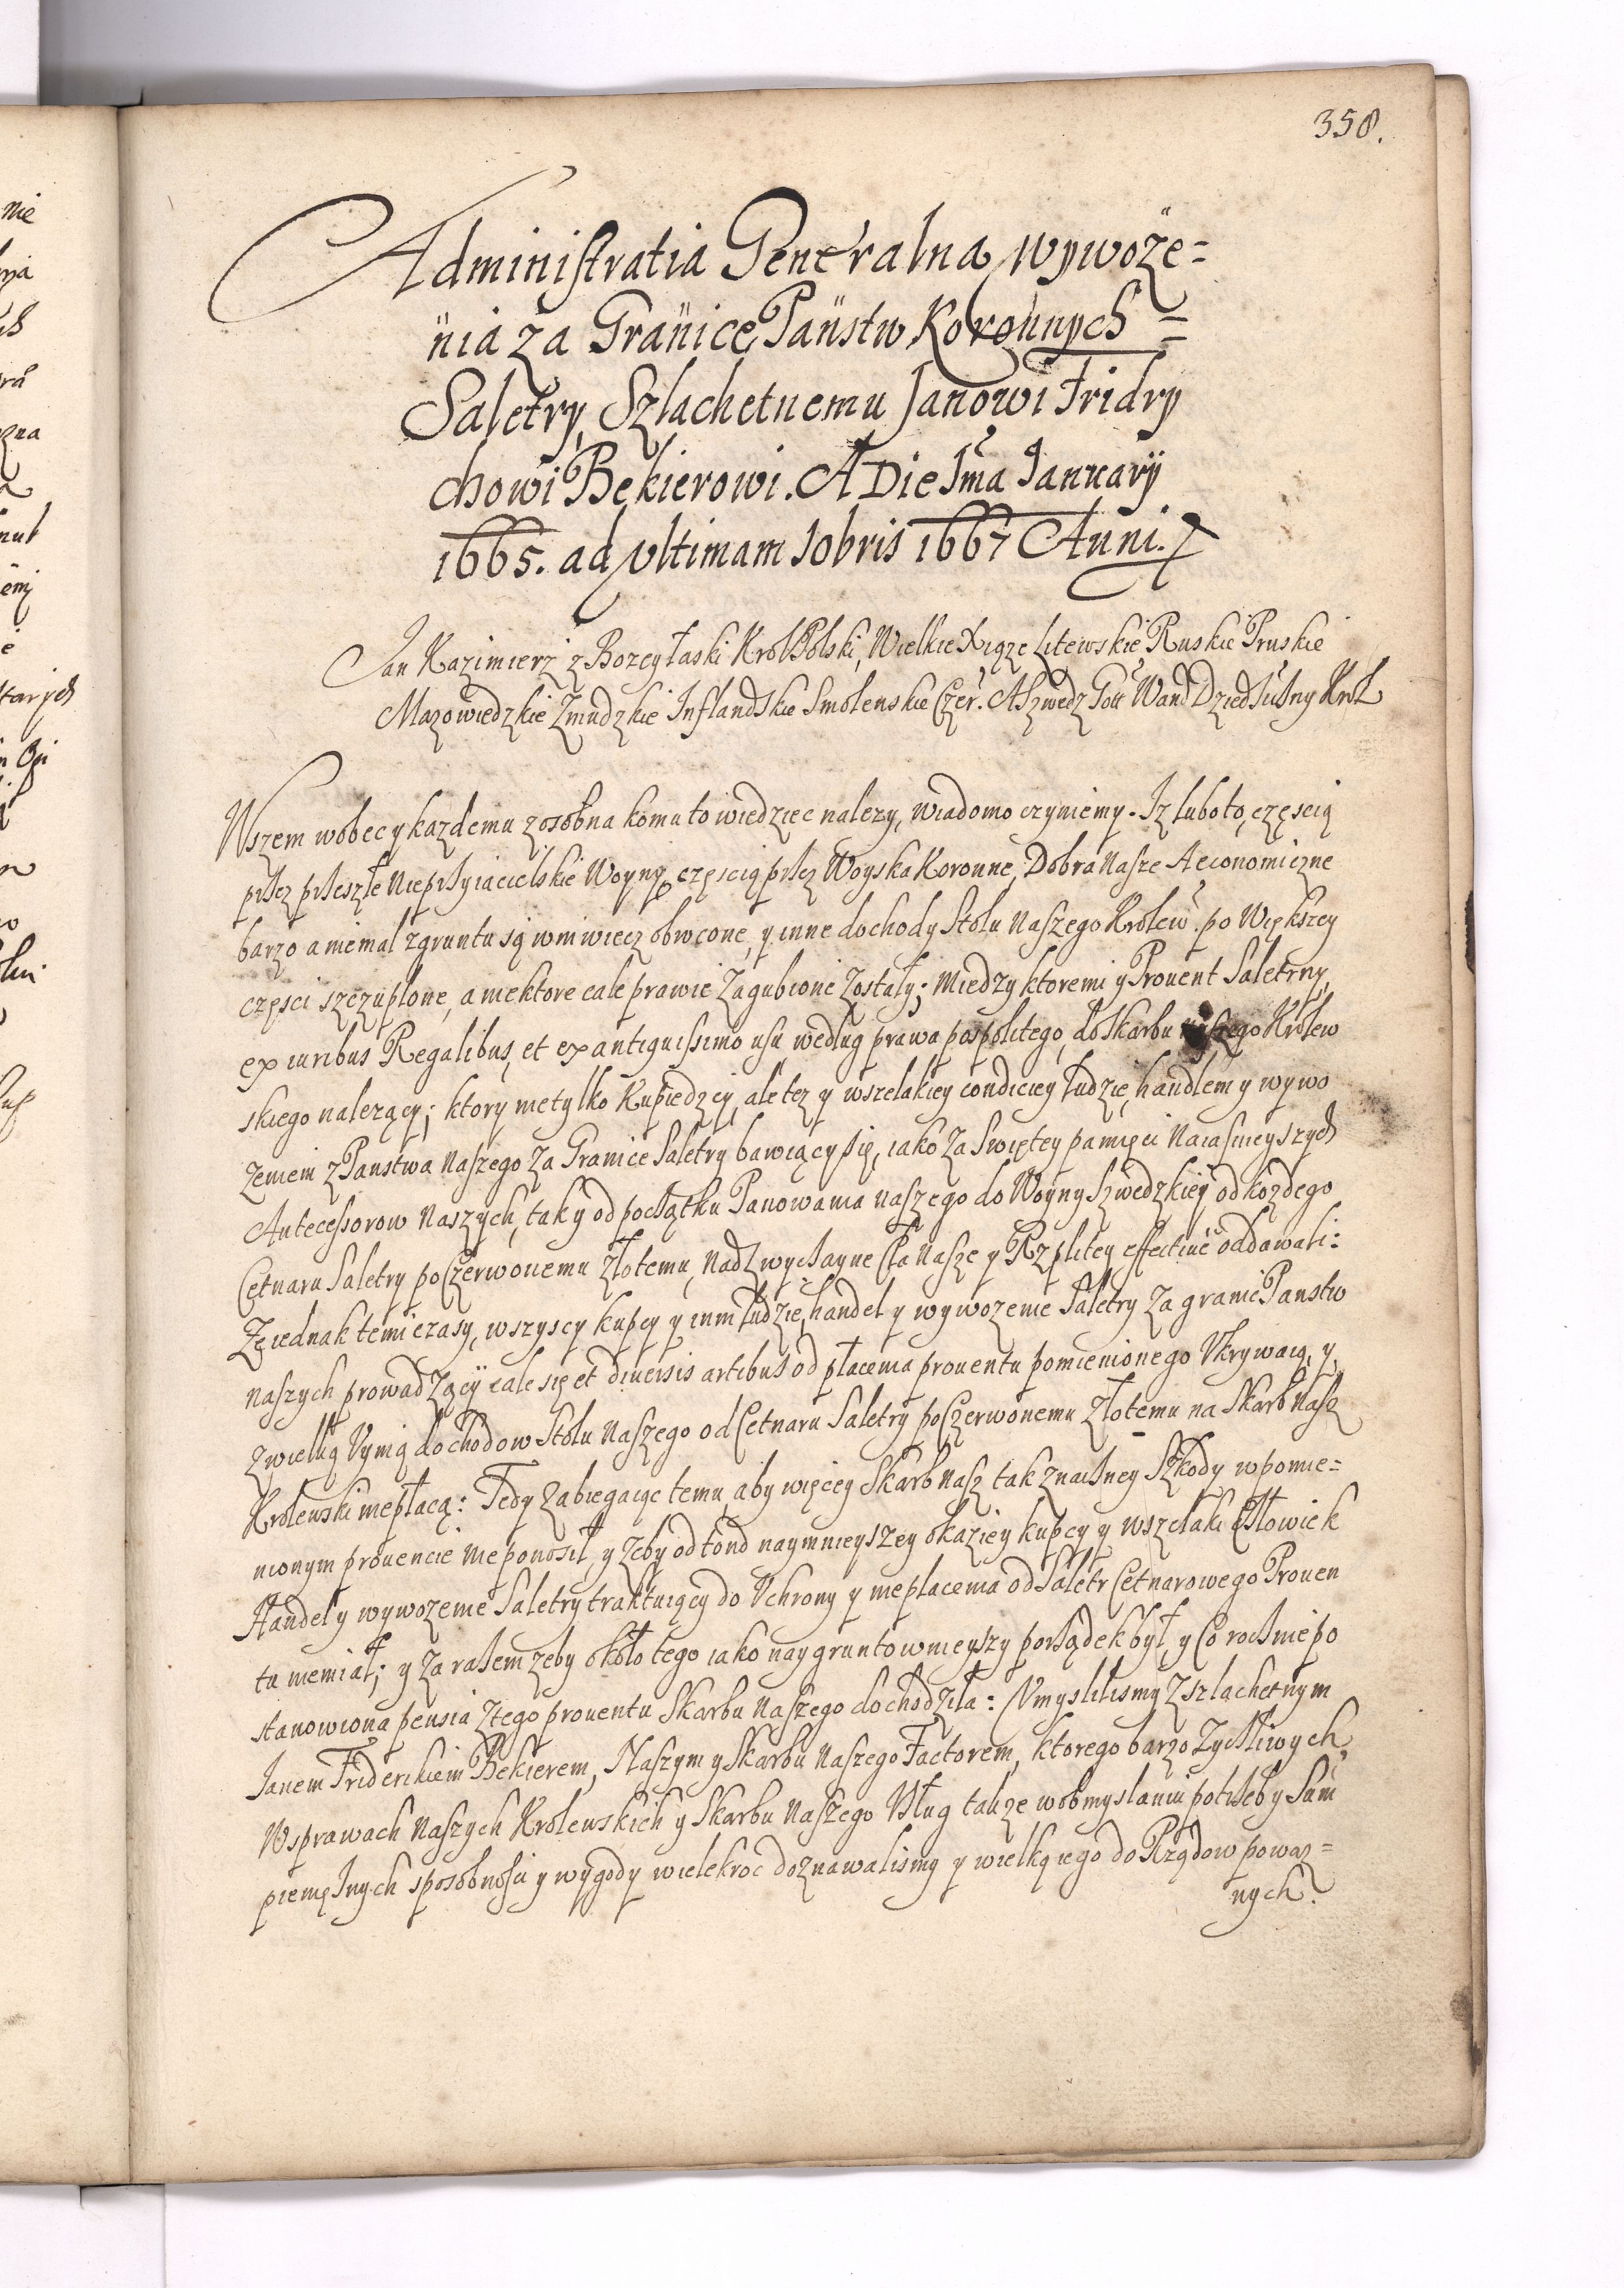 358.
Administratia Generalna wywoze=
nia za Granice Państw Koronnych =
Saletry, Szlachetnemu Janowi Fridry
chowi Bekierowi. A Die 1ma Januarij
1665. ad ultimam Xbris 1667 Anni.
Jan Kazimierz z Bozey Łaski Krol Polski, Wielkie Xiąze Litewskie Ruskie Pruskie
Mazowiedzkie Zmudzkie Inflandskie Smolenskie Czer. A Szwedz Got Wand Dzied
Wszem wobec y kazdemu zosobna komu to wiedziec nalezy, wiadomo czyniemy. Iz lubo to, częscią
przez przeszłe Nieprzyiacielskie Woyny, częscią przez Woyska Koronne, Dobra Nasze Aeconomiczne
barzo a niemal zgruntu są wniwiecz obrocone, y inne dochody Stołu Naszego Krolew. po Większey
częsci szczuplone, a niektore cale prawie zagubione zostały; Miedzy ktoremi y Prouent Saletrny,
ex iuribus Regalibus, et ex antiquissimo usu według prawa pospolitego, do skarbu naszego Krolew
skiego nalezący; ktory nie tylko Kupiedzcy, ale tez y wszelakiey condiciey ludzie, handlem y wywo
zeniem z Panstwa Naszego za Granice Saletry bawiący się, iako za Swiętey pamięci Naiasnieyszych
Antecessorow Naszych, tak y od początku Panowania naszego do Woyny Szwedzkiey, od kozdego
Cetnaru Saletry po Czerwonemu złotemu, nad zwyczayne Cła nasze y Rzplitey effectiue oddawali:
Ze iednak temi czasy, wszyscy kupcy y inni ludzie, handel y wywozenie Saletry za granic Panstw
naszych prowadzący cale się et diuersis artibus od płacenia prouentu pomienionego Vkrywaią, y
z wielką Vymą dochodow Stołu Naszego od Cetnaru Saletry po Czerwonemu Złotemu na Skarb Nasz
Krolewski nie płacą: Tedy zabiegaiąc temu, aby więcey Skarb Nasz tak znaczney Szkody w pomie=
nionym prouencie nie ponosił, y zeby odtond naymnieyszey okaziey kupcy y wszelaki Człowiek
Handel y wywozenie Saletry traktuiący do Vchrony y nieplacenia od Saletr Cetnarowego Prouen
tu niemiał; y zarazem zeby około tego iako naygruntownieyszy porządek był, y Co rocznie po
stanowiona pensia z tego prouentu Skarbu Naszego dochodziła: Vmyslilismy z Szlachetnym
Janem Friderikiem Bekierem, Naszym y Skarbu Naszego Factorem, ktorego barzo Zyczliwych
W sprawach Naszych Krolewskich y Skarbu Naszego Vsług takze w obmyslaniu potrzeby Sum
pienięznych sposobnosci y wygody wielekroc doznawalismy y wielką iego do Rządow powaz=
nych.